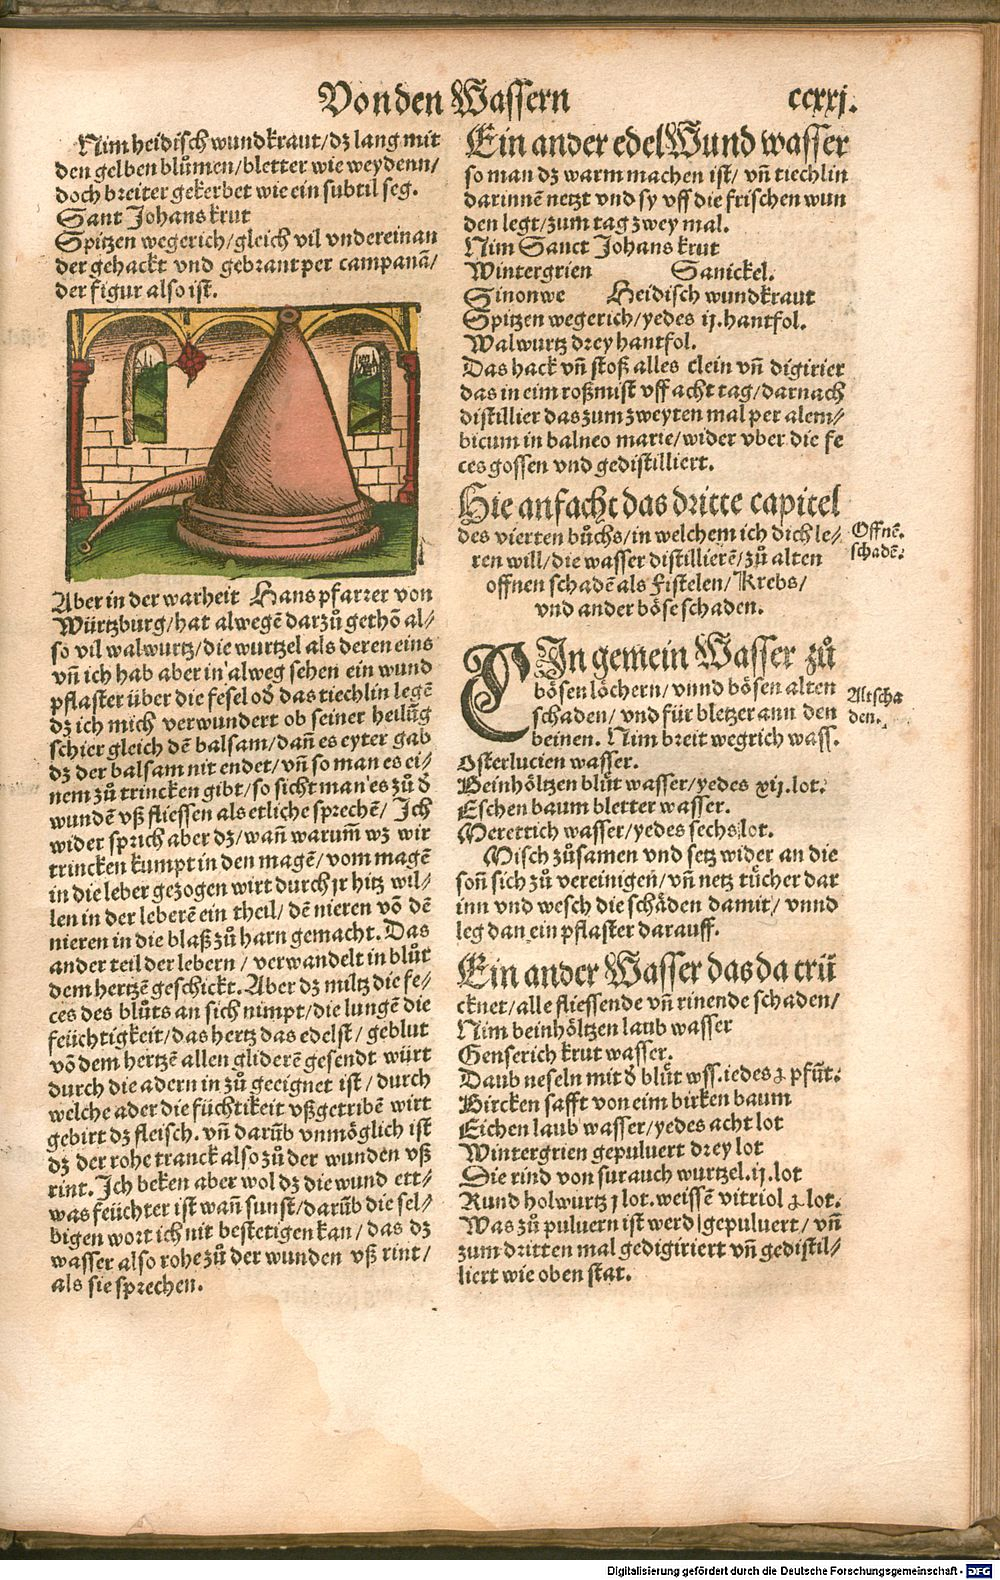 Von den Wassern
ccxxj.
Nim heidisch wundkraut/dz lang mit
den gelben blůmen/bletter wie weydenn/
doch breiter gekerbet wie ein subtil seg.
Sant Johans krut
Spitzen wegerich/gleich vil vndereinan
der gehackt vnd gebrant per campanã/
der figur also ist.
Aber in der warheit Hans pfarrer von
Würtzburg/hat alwegẽ darzů gethõ al-
so vil walwurtz/die wurtzel als deren eins
vñ ich hab aber in alweg sehen ein wund
pflaster über die fesel od̃ das tiechlin legẽ
dz ich mich verwundert ob seiner heilũg
schier gleich dẽ balsam/dañ es eyter gab
dz der balsam nit endet/vñ so man es ei-
nem zů trincken gibt/so sicht man es zů d̃
wundẽ vß fliessen als etliche sprechẽ/ Jch
wider sprich aber dz/wañ warum̃ wz wir
trincken kumpt in den magẽ/vom magẽ
in die leber gezogen wirt durch jr hitz wil-
len in der leberẽ ein theil/dẽ nieren võ dẽ
nieren in die blaß zů harn gemacht. Das
ander teil der lebern/verwandelt in blůt
dem hertzẽ geschickt. Aber dz miltz die fe-
ces des blůts an sich nimpt/die lungẽ die
feüchtigkeit/das hertz das edelst/geblut
võ dem hertzẽ allen gliderẽ gesendt würt
durch die adern in zů geeignet ist/durch
welche ader die füchtikeit vßgetribẽ wirt
gebirt dz fleisch. vñ darũb vnmöglich ist
dz der rohe tranck also zů der wunden vß
rint. Jch beken aber wol dz die wund ett-
was feüchter ist wañ sunst/darũb die sel-
bigen wort ich nit bestetigen kan/das dz
wasser also rohe zů der wunden vß rint/
als sie sprechen.
Ein ander edel Wund wasser
so man dz warm machen ist/vñ tiechlin
darinnẽ netzt vnd sy vff die frischen wun
den legt/zum tag zwey mal.
Nim Sanct Johans krut
Wintergrien Sanickel.
Sinonwe Heidisch wundkraut
Spitzen wegerich/yedes ij. hantfol.
Walwurtz drey hantfol.
Das hack vñ stoß alles clein vñ digirier
das in eim roßmist vff acht tag/darnach
distillier das zum zweyten mal per alem-
bicum in balneo marie/wider vber die fe
ces gossen vnd gedistilliert.
Hie anfacht das dritte capitel
des vierten bůchs/in welchem ich dich le-
ren will/die wasser distillierẽ/zů alten
offnen schadẽ als Fistelen/Krebs/
vnd ander böse schaden.
Offnẽ.
schadẽ.
EJn gemein Wasser zů
bösen löchern/vnnd bösen alten
schaden/vnd für bletzer ann den
beinen. Nim breit wegrich wass.
Osterlucien wasser.
Beinhöltzen blůt wasser/yedes xij. lot.
Eschen baum bletter wasser.
Merettich wasser/yedes sechs lot.
Altscha
den.
Misch zůsamen vnd setz wider an die
soñ sich zů vereinigen/vñ netz tücher dar
inn vnd wesch die schäden damit/vnnd
leg dan ein pflaster darauff.
Ein ander Wasser das da trü
cknet/alle fliessende vñ rinende schaden/
Nim beinhöltzen laub wasser
Genserich krut wasser.
Daub neseln mit d̃ blůt wss. iedes ꝫ pfũt.
Bircken safft von eim birken baum
Eichen laub wasser/yedes acht lot
Wintergrien gepuluert drey lot
Die rind von surauch wurtzel. ij. lot
Rund holwurtz j lot. weissẽ vitriol ꝫ lot.
Was zů puluern ist werd gepuluert/vñ
zum dritten mal gedigiriert vñ gedistil-
liert wie oben stat.
Digitalisierung gefördert durch die Deutsche Forschungsgemeinschaft - DFG